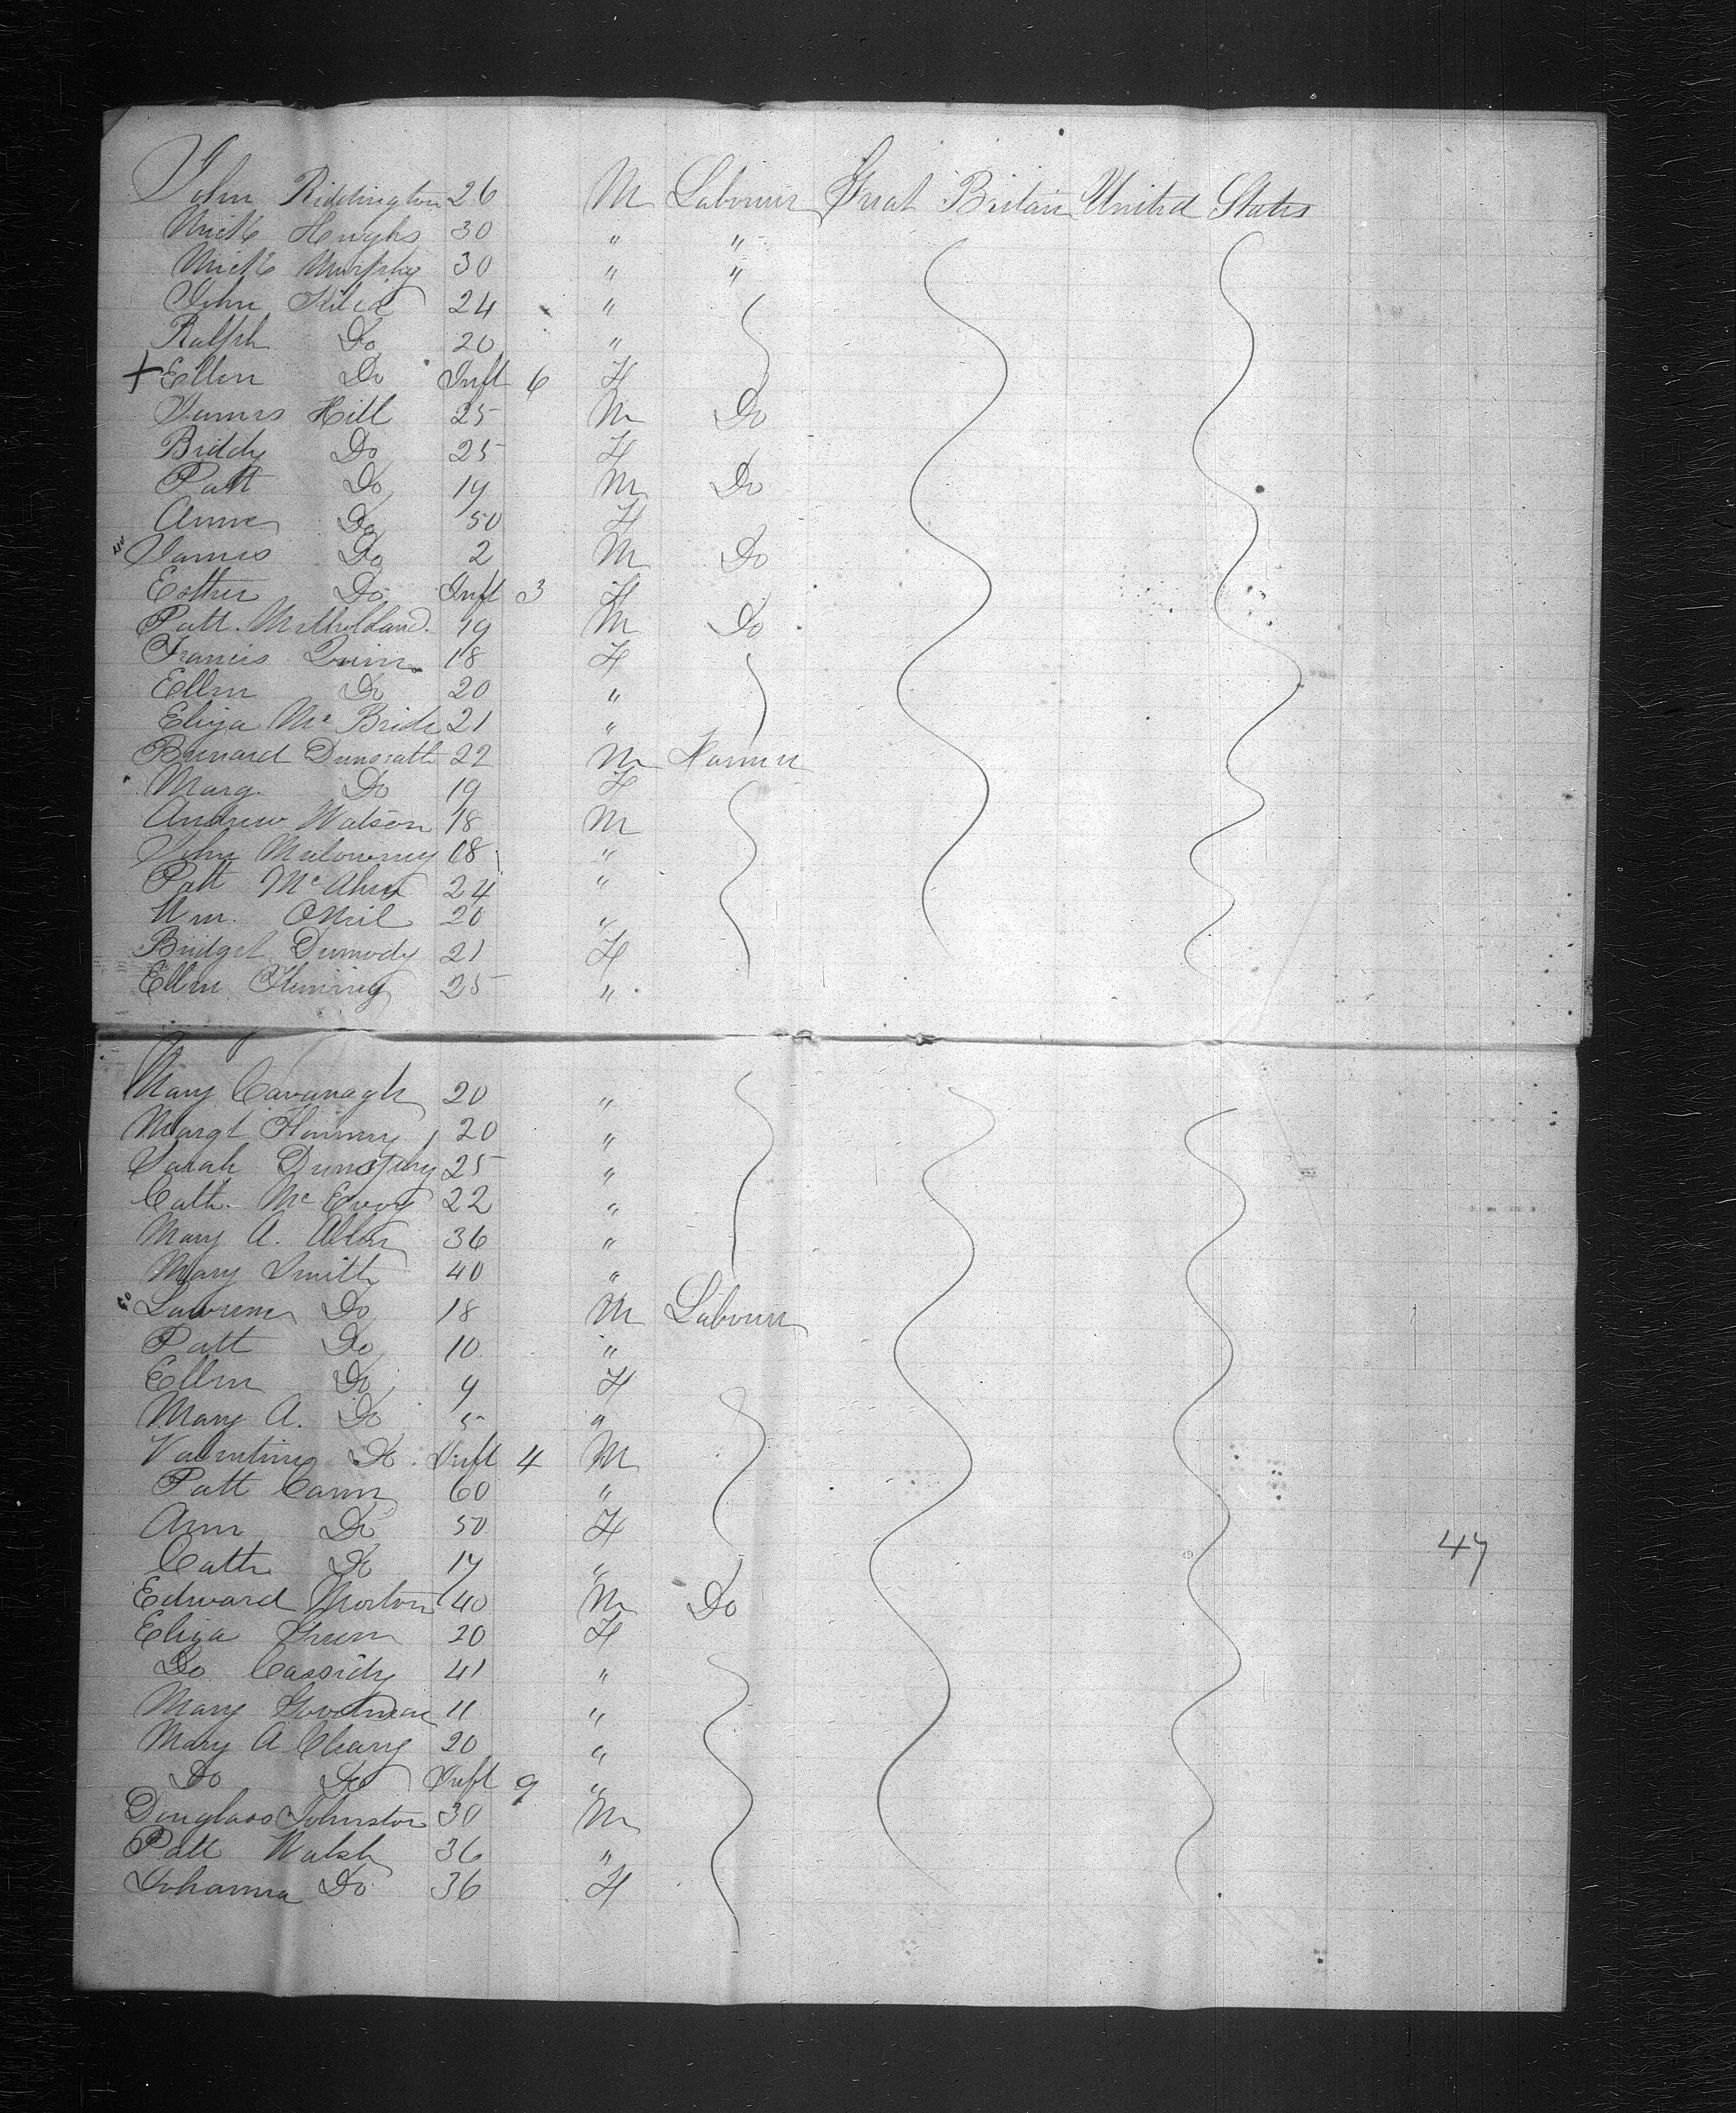 John Riddington 26 M Labourer Great Britain United States
Mick Hughs 30 " "
Mick Murphy 30 " "
John 24 "
Ralph Do 20 "
+ Ellen Do Inft 6 F
James Hill 25 M Do
Biddy Do 25 F
Patt Do 19 M Do
Anne Do 50 F
James Do 2 M Do
Esther Do Inft 3 F
Patt. Mulholland 19 M Do
Francis Quinn 18 F
Ellen Do 20 "
Eliza Mc Bride 21 "
Bernard Dunseath 22 M Farmer
Marg. Do 19 F
Andrew Watson 18 M
John Mulowney 18 "
Patt 24 "
Wm. ONeil 20 "
Bridget Dunwody 21 F
Ellen Fleming 25 "
Mary Cavanagh 20 "
Margt 20 "
Sarah 25 "
Cath. Mc Evoy 22 "
Mary A. Allen 36 "
Mary Smith 40 "
Lawrence Do 18 M Labourer
Patt Do 10 "
Ellen Do 9 F
Mary A. Do 5 "
Valentine Do Inft 4 M
Patt Carr 60 "
Ann Do 50 F
Cath Do 17 "
47
Edward Morton 40 M Do
Eliza Green 20 F
Do Cassidy 41 "
Mary Goodman 11 "
Mary A Cleary 20 "
Do Do Inft 9 "
Douglass Johnston 30 M
Patt Walsh 36 "
Johanna Do 36 F